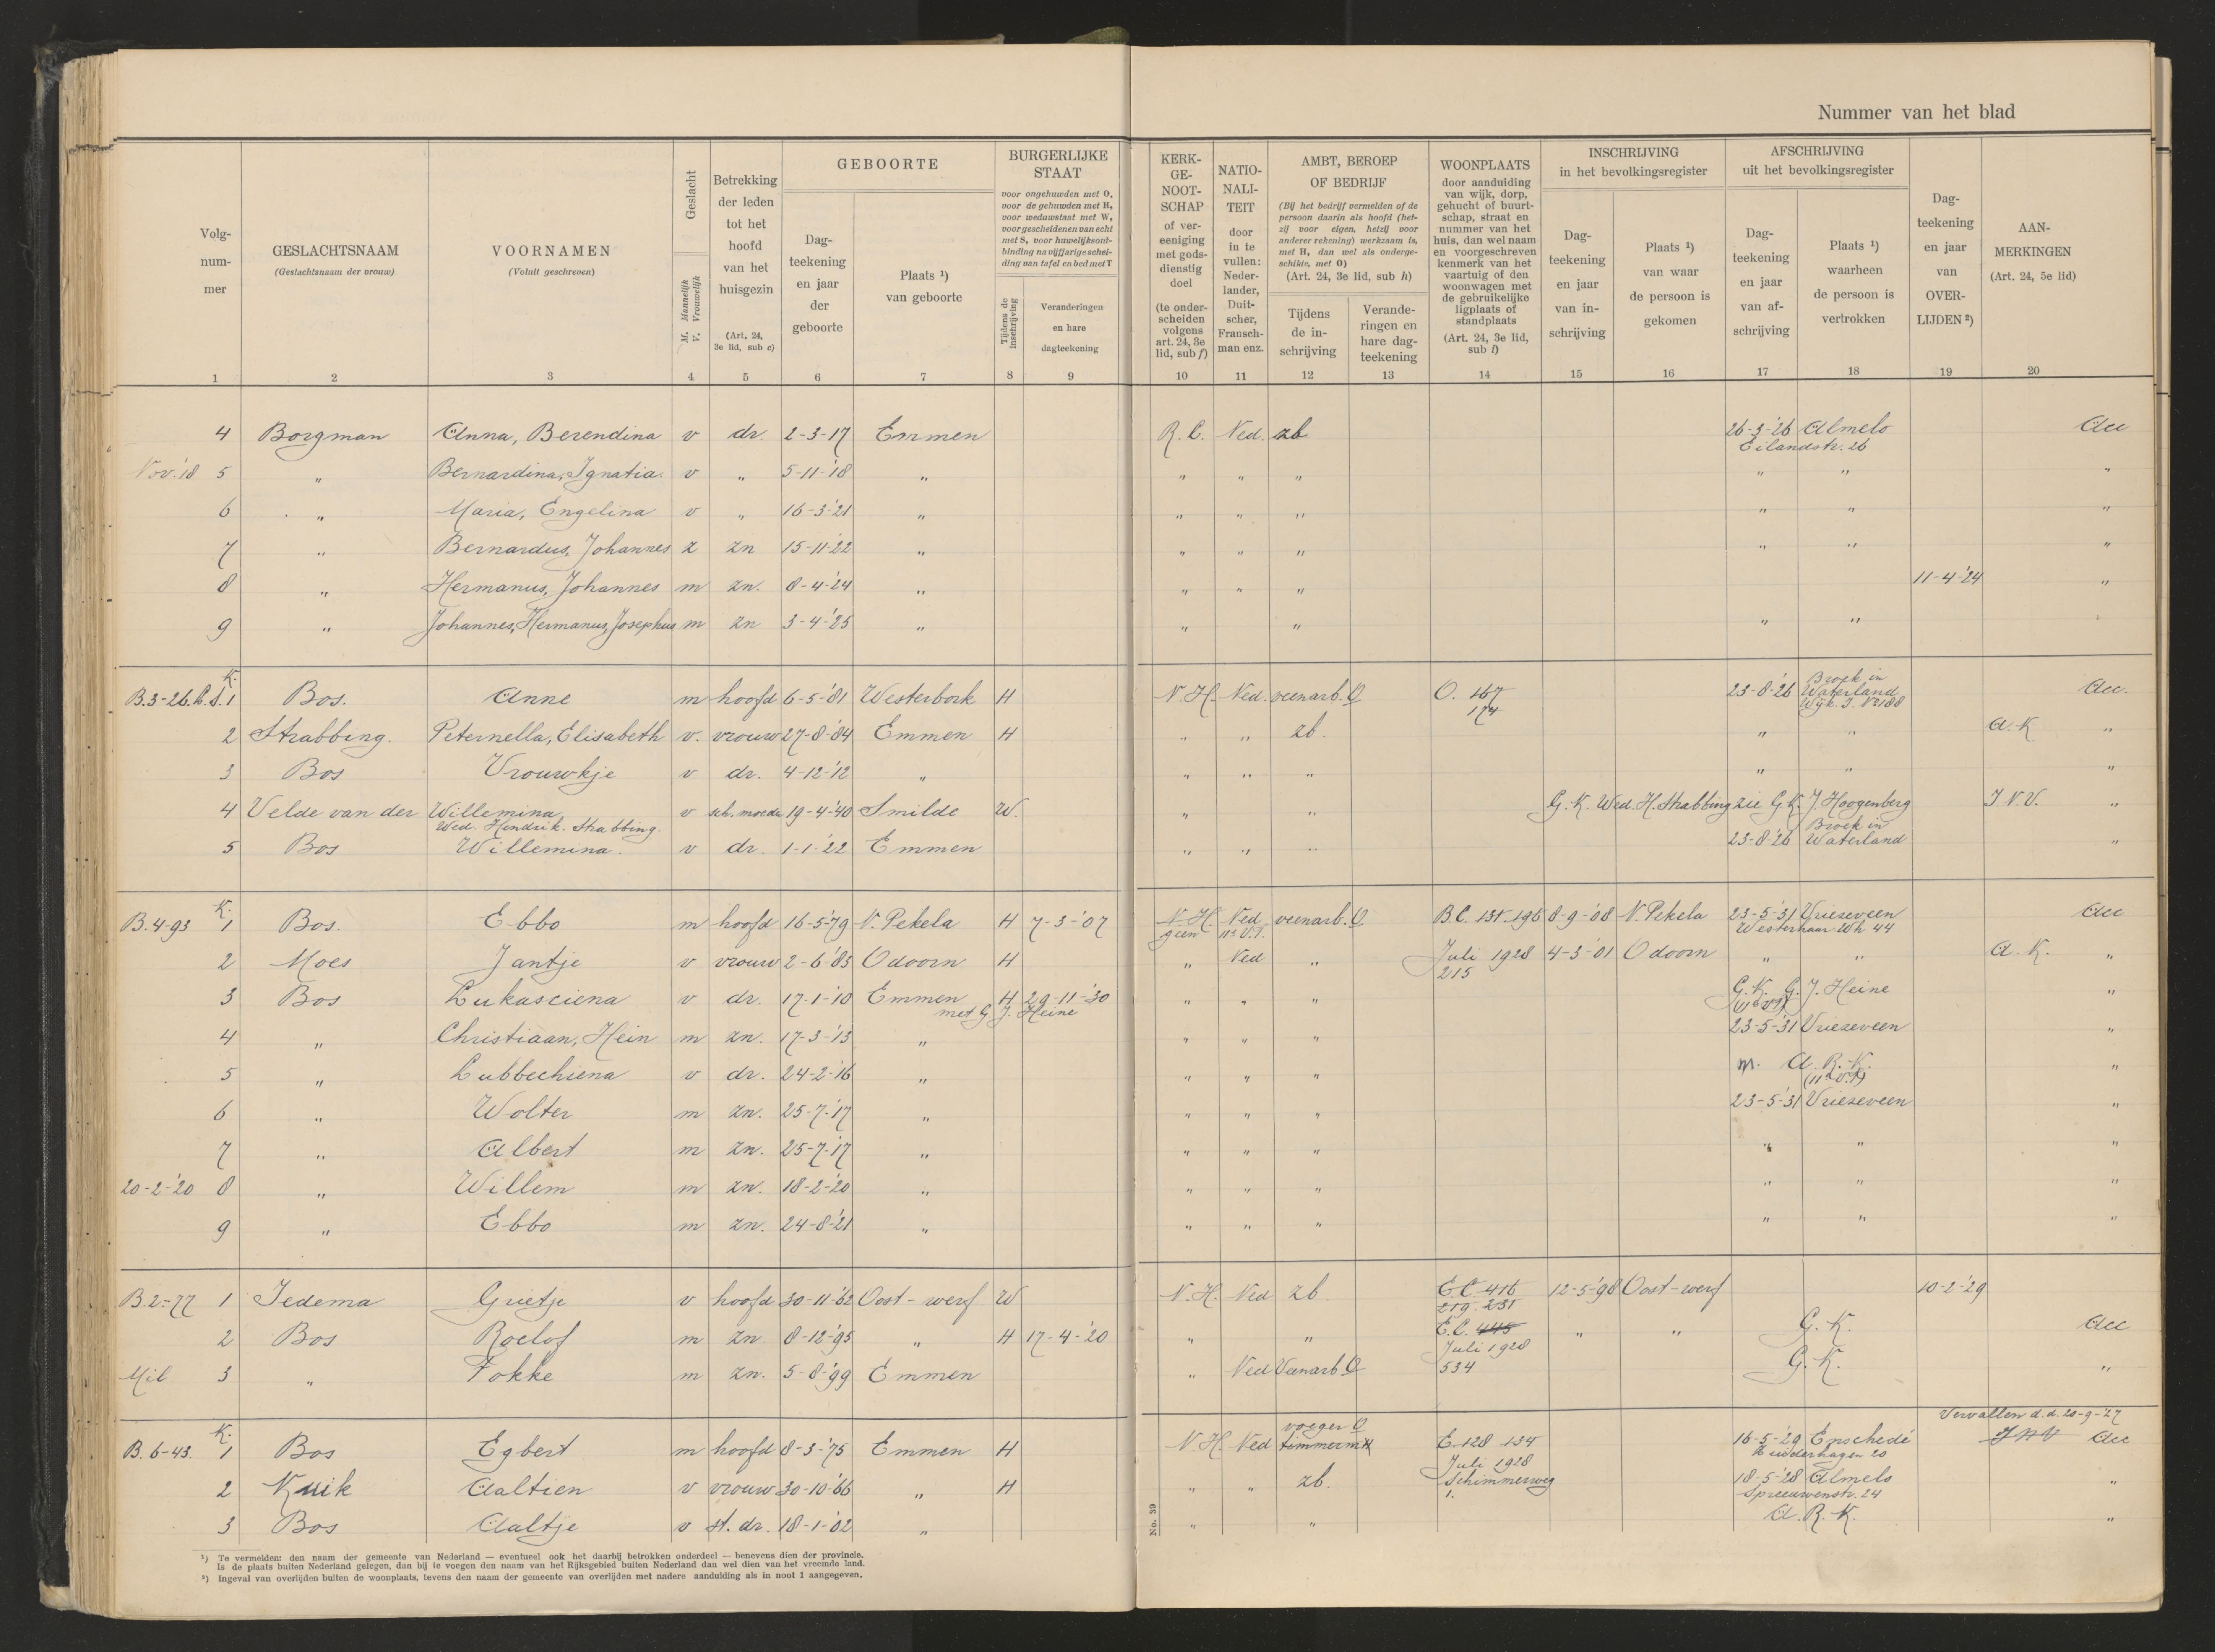 Nummer van het blad
Volg-
num-
mer
1
GESLACHTSNAAM
(Geslachtsnaam der vrouw)
2
VOORNAMEN
(Voluit geschreven)
3
Geslacht
M. Mannelijk
V. Vrouwelijk
4
Betrekking
der leden
tot het
hoofd
van het
huisgezin
(Art. 24,
3e lid, sub c)
5
GEBOORTE
Dag-
teekening
en jaar
der
geboorte
6
Plaats ¹)
van geboorte
7
BURGERLIJKE
STAAT
voor ongehuwden met O,
voor de gehuwden met H,
voor weduwstaat met W,
voor gescheidenen van echt
met S, voor huwelijksont-
binding na vijfjarige schei-
ding van tafel en bed met T
Tijdens de
inschrijving
8
Veranderingen
en hare
dagteekening
9
KERK-
GE-
NOOT-
SCHAP
of ver-
eeniging
met gods-
dienstig
doel
(te onder-
scheiden
volgens
art. 24, 3e
lid, sub f)
10
NATIO-
NALI-
TEIT
door
in te
vullen:
Neder-
lander,
Duit-
scher,
Fransch-
man enz.
11
AMBT, BEROEP
OF BEDRIJF
(Bij het bedrijf vermelden of de
persoon daarin als hoofd (het-
zij voor eigen, hetzij voor
anderer rekening) werkzaam is,
met H, dan wel als onderge-
schikte, met O)
(Art. 24, 3e lid, sub h)
Tijdens
de in-
schrijving
12
Verande-
ringen en
hare dag-
teekening
13
WOONPLAATS
door aanduiding
van wijk, dorp,
gehucht of buurt-
schap, straat en
nummer van het
huis, dan wel naam
en voorgeschreven
kenmerk van het
vaartuig of den
woonwagen met
de gebruikelijke
ligplaats of
standplaats
(Art. 24, 3e lid,
sub l)
14
INSCHRIJVING
in het bevolkingsregister
Dag-
teekening
en jaar
van in-
schrijving
15
Plaats ¹)
van waar
de persoon is
gekomen
16
AFSCHRIJVING
uit het bevolkingsregister
Dag-
teekening
en jaar
van af-
schrijving
17
Plaats ¹)
waarheen
de persoon is
vertrokken
18
Dag-
teekening
en jaar
van
OVER-
LIJDEN ²)
19
AAN-
MERKINGEN
(Art. 24, 5e lid)
20
4 Borgman Anna, Berendina v dr. 2-3-17 Emmen R.C. Ned. zb 26-3-'26 Almelo Acc
Eilandstr. 26
Nov. '18 5 " Bernardina, Ignatia. v " 5-11-'18 " " " " " " "
6 " Maria, Engelina v " 16-3-'21 " " " " " " "
7 " Bernardus, Johannes z zn 15-11-'22 " " " " " " "
8 " Hermanus, Johannes m zn. 8-4-'24 " " " " 11-4-'24 "
9 " Johannes, Hermanus, Josephus m zn 3-4-'25 " " " " "
K.
B.3-26. 1 Bos. Anne m hoofd 6-5-'81 Westerbork H N.H. Ned. veenarb. O O. 167 23-8-'26 Broek in Acc.
174 Waterland
Wijk. J. No 188
2 Strabbing. Peternella, Elisabeth v. vrouw 27-8-'84 Emmen H " " zb. " " A.K "
3 Bos Vrouwkje v dr. 4-12-'12 " " " " " " "
4 Velde van der Willemina v sch. moeder 19-4-'40 Smilde W. " " G.K. Wed. H. Strabbing zie G.K. J. Hoogenberg J.N.V. "
Wed. Hendrik. Strabbing.
5 Bos Willemina. v dr. 1-1-'22 Emmen " " " 23-8-'26 Broek in Waterland "
K.
B.4-93 1 Bos. Ebbo m hoofd 16-5-'79 N. Pekela H 7-3-'07 N.H. Ned veenarb. O B.C. 131. 196 8-9-'08 N. Pekela 23-5-'31 Vriezeveen Acc
geen Westerhaar Wh 44
2 Moes Jantje v vrouw 2-6-'83 Odoorn H " Ned " Juli 1928 4-3-'01 Odoorn " " A.K. "
215
3 Bos Lukasciena v dr. 17-1-'10 Emmen H 29-11-'30 " " " G.K. G.J. Heine "
met G.J. Heine
4 " Christiaan, Hein m zn. 17-3-'13 " " " " 23-5-'31 Vriezeveen "
5 " Lubbechiena v dr. 24-2-'16 " " " " m. A.R.K. "
6 " Wolter m zn. 25-7-'17 " " " " 23-5-'31 Vriezeveen "
7 " Albert m zn. 25-7-'17 " " " " " " "
20-2-'20 8 " Willem m zn. 18-2-'20 " " " " " " "
9 " Ebbo m zn. 24-8-'21 " " " " " " "
B.2-77 1 Jedema Grietje v hoofd 30-11-'62 Oost-werf W N.H. Ned zb. E.C. 416 12-5-'98 Oost-werf 10-2-'29
219. 231
2 Bos Roelof m zn 8-12-'95 " H 17-4-'20 " " E.C. 445 " " G.K. Acc
Juli 1928
Mil 3 " Fokke m zn. 5-8-'99 Emmen " Ned Veenarb O 534 G.K. "
Vervallen d.d. 20-9-'27
K. voeger O
B.6-43. 1 Bos Egbert m hoofd 8-3-'75 Emmen H N.H. Ned timmerm H E. 128 134 16-5-'29 Enschedé J.N.V Acc
Juli 1928
2 Kuik Aaltien v vrouw 30-10-'66 " H " " zb. Schimmerweg 18-5-'28 Almelo "
1. Spreeuwenstr. 24
3 Bos Aaltje v st. dr. 18-1-'02 " " " A.R.K. "
No. 39
¹) Te vermelden: den naam der gemeente van Nederland — eventueel ook het daarbij betrokken onderdeel — benevens dien der provincie.
Is de plaats buiten Nederland gelegen, dan bij te voegen den naam van het Rijksgebied buiten Nederland dan wel dien van het vreemde land.
²) Ingeval van overlijden buiten de woonplaats, tevens den naam der gemeente van overlijden met nadere aanduiding als in noot 1 aangegeven.